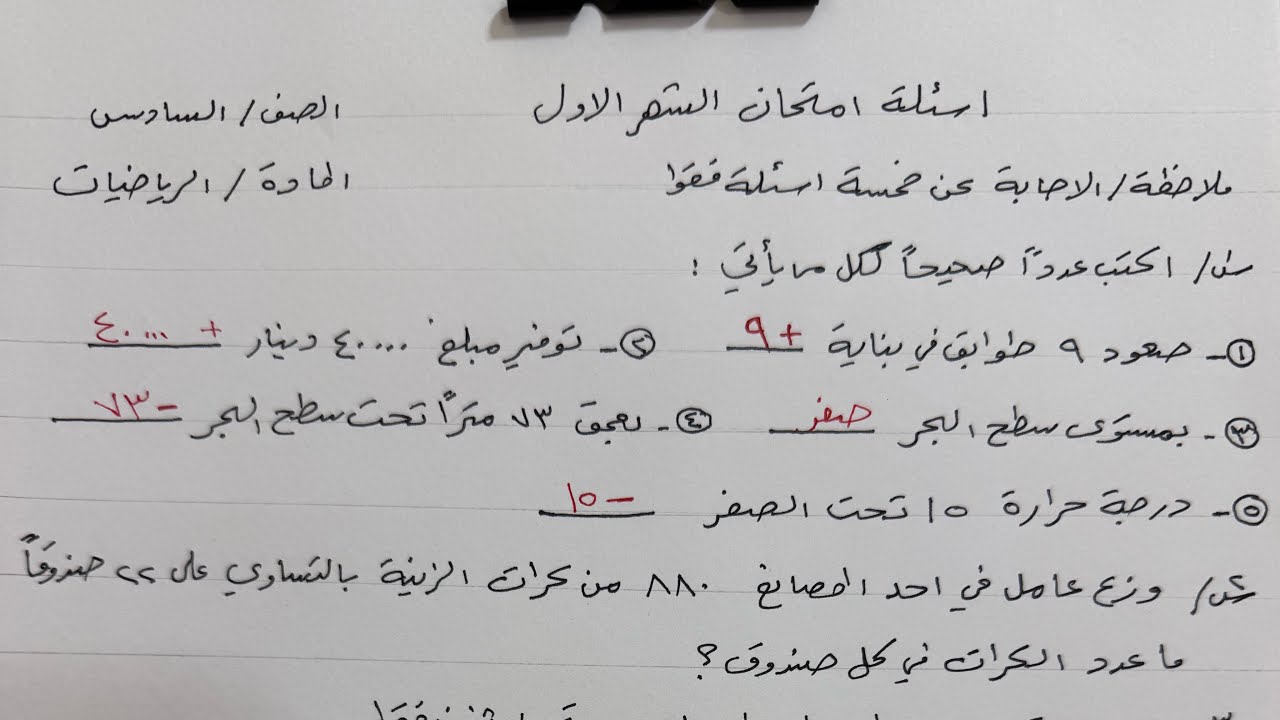 اسئلة امتحان الشهر الاول الصف / السادس
ملاحظة / الاجابة عن خمسة اسئلة فقط المادة / الرياضيات
س١/ اكتب عدداً صحيحاً لكل مما يأتي :
١- صعود ٩ طوابق في بناية +٩ ٢- توفير مبلغ ٤٠٠٠٠ دينار + ٤٠٠٠٠
٣- بمستوى سطح البحر صفر ٤- بعمق ٧٣ متراً تحت سطح البحر -٧٣
٥- درجة حرارة ١٥ تحت الصفر -١٥
س٢/ وزع عامل في احد المصانع ٨٨٠ من كرات الزينة بالتساوي على ٢٢ صندوقاً
ما عدد الكرات في كل صندوق ؟